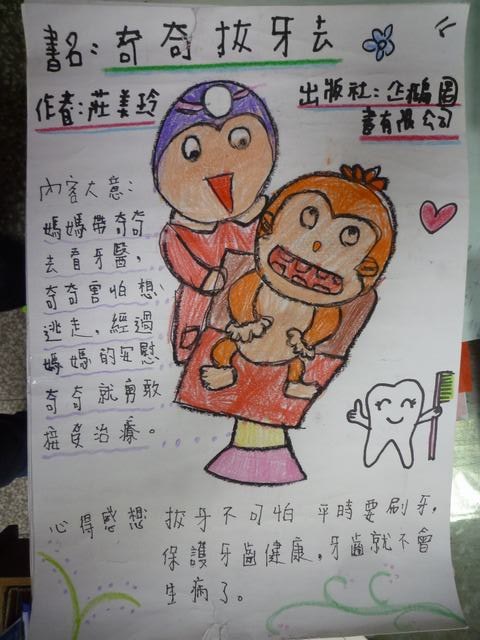 書名:奇奇拔牙去
作者:莊美玲
出版社:企鵝圖
書有限公司
內容大意:
媽媽帶奇奇
去看牙醫,
奇奇害怕想
逃走,經過
媽媽的安慰
奇奇就勇敢
接受治療。
心得感想 拔牙不可怕 平時要刷牙,
保護牙齒健康,牙齒就不會
生病了。